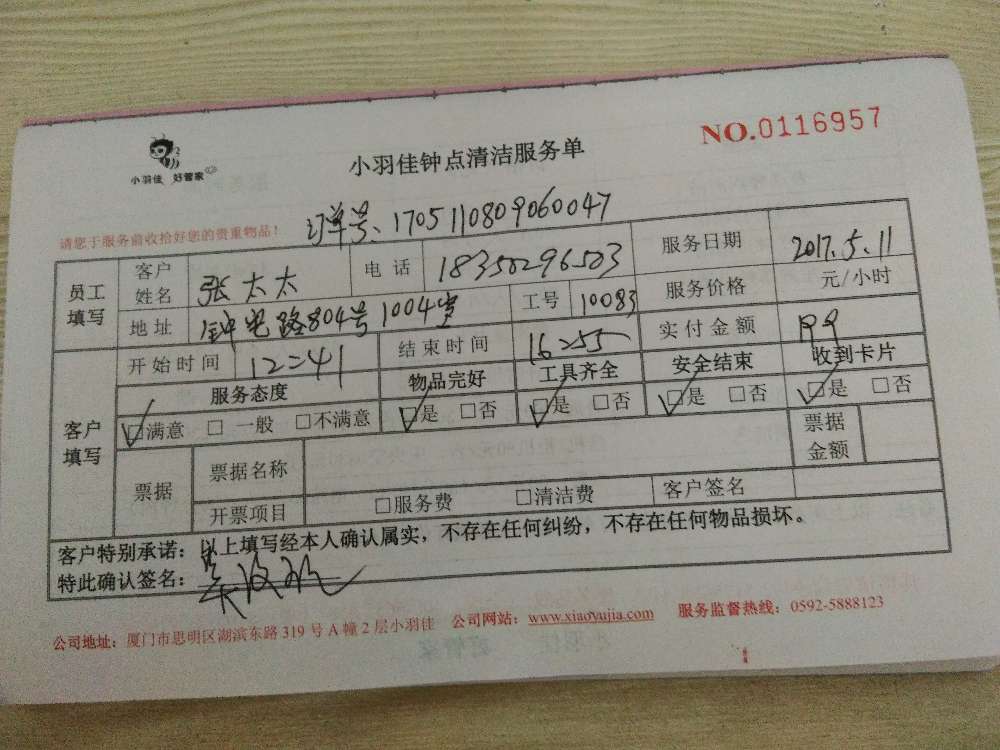 小羽佳 好管家
小羽佳钟点清洁服务单
NO.0116957
请您于服务前收拾好您的贵重物品！
订单号、1705110809060047
员工填写 客户姓名 张太太 电话 18350296503 服务日期 2017.5.11
地址 804号1004室 工号 10083 服务价格 元/小时
开始时间 12=41 结束时间 16=55 实付金额
客户填写 服务态度 物品完好 工具齐全 安全结束 收到卡片
☑满意 □ 一般 □不满意 ☑是 □否 ☑是 □否 ☑是 □否 ☑是 □否
票据 票据名称 票据金额
开票项目 □服务费 □清洁费 客户签名
客户特别承诺：以上填写经本人确认属实，不存在任何纠纷，不存在任何物品损坏。
特此确认签名：
公司地址：厦门市思明区湖滨东路 319 号 A 幢 2 层小羽佳 公司网站：www.xiaoyujia.com 服务监督热线：0592-5888123